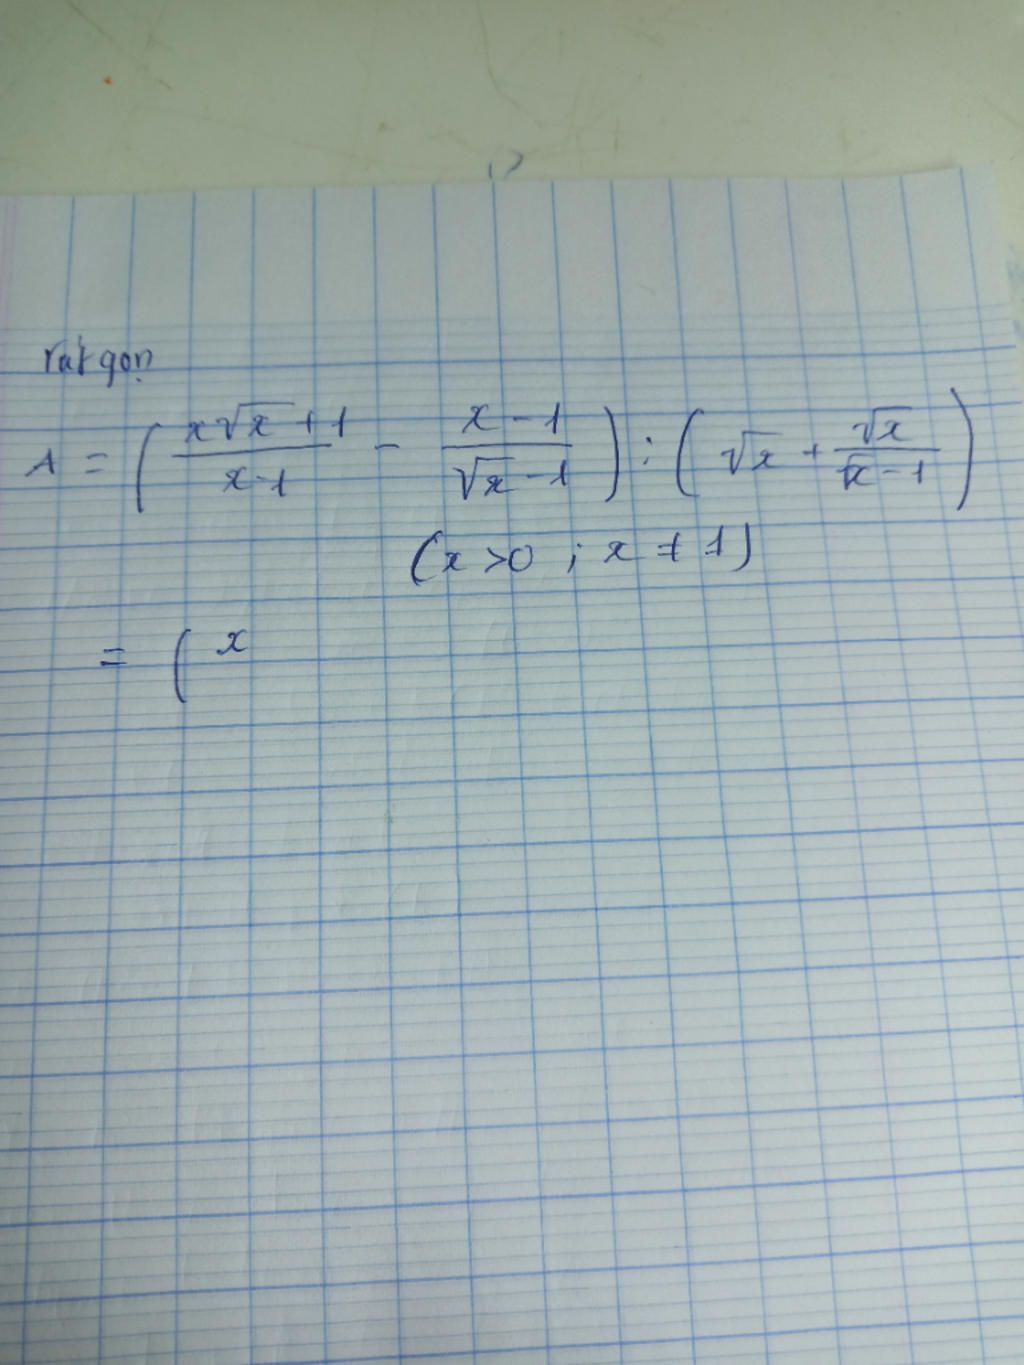 rút gọn
A = ( (x√x + 1)/(x-1) - (x-1)/(√x-1) ) : ( √x + √x/(√x-1) )
(x>0 ; x ≠ 1)
= ( x